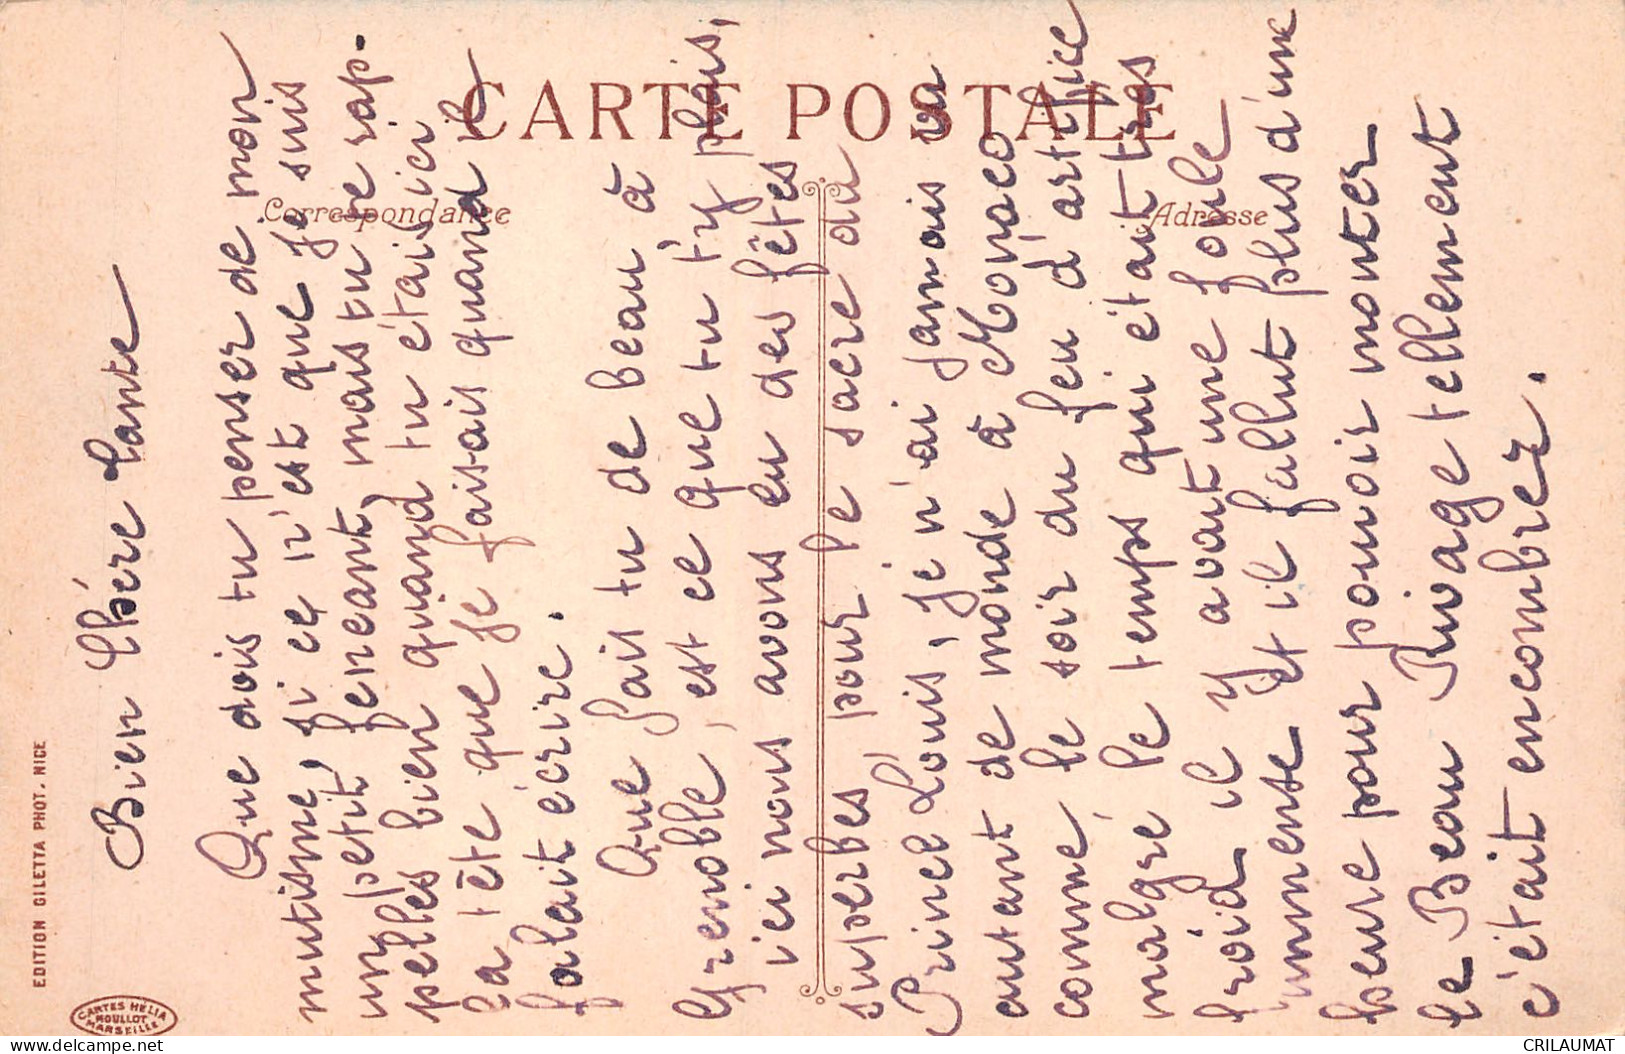 CARTE POSTALE
Correspondance
Adresse
EDITION GILETTA PHOT. NICE
CARTES HELIA
MOULLOT
MARSEILLE
Bien Chére Tante
Que dois tu penser de mon
mutisme, si ce n'est que je suis
un petit feneant, mais tu te rap-
pelles bien quand tu étais ici
la tête que je faisais quand il
falait écrire.
Que fais tu de beau à
Grenoble, est ce que tu t'y plais,
ici nous avons eu des fêtes
superbes, pour le sacre du
Prince Louis, je n'ai jamais vu
autant de monde à Monaco
comme le soir du feu d'artifice
malgré le temps qui était très
froid il y avait une foule
immense et il fallut plus d'une
heure pour pouvoir monter
le Beau Rivage tellement
c'était encombrer.
CRILAUMAT